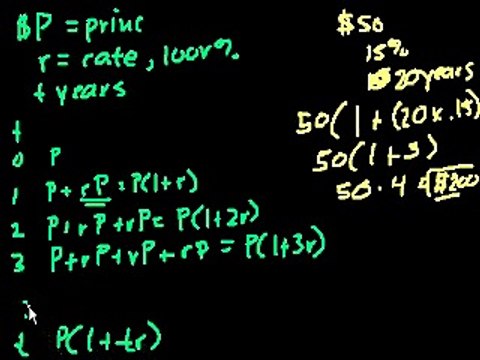 $P = princ
r = rate, 100r%
t years
t
0 P
1 P + rP = P(1+r)
2 P + rP + rP = P(1+2r)
3 P + rP + rP + rP = P(1+3r)
t P(1+tr)
$50
15%
20 years
50(1 + (20 x .15)
50(1+3)
50 · 4 = $200